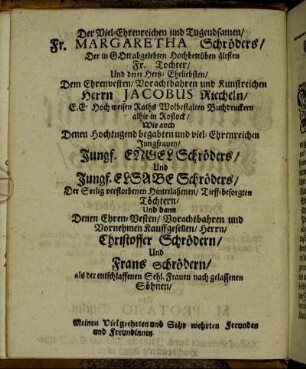 Der Viel-Ehrenreichen und Tugendsamen/
Fr. MARGARETHA Schröders/
Der in GOtt abgelebten Hochbetrüben ältesten
Fr. Tochter/
Und derer Hertz-Eheliebsten/
Dem Ehrenvesten/ Vorachtbahren und Kunstreichen
Herrn JACOBUS Richeln/
E.E. Hoch weisen Raths Wolbestalten Buchdruckern
alhie in Rostock/
Wie auch
Denen Hochtugend begabten und viel-Ehrenreichen
Jungfrauen/
Jungf. ENGEL Schröders/
Und
Jungf. ELSABE Schröders/
Der Seelig verstorbenen Hinterlaßenen/ Tieff-besorgten
Töchtern/
Und dann
Denen Ehren-Vesten/ Vorachtbahren und
Vornehmen Kauffgesellen/ Herrn/
Christoffer Schrödern/
Und
Frans Schrödern/
als der entschlaffenen Sehl. Frauen nach gelassenen
Söhnen/
Meinen Vielgeehrten und Sehr wehrten Freunden
und Freundinnen